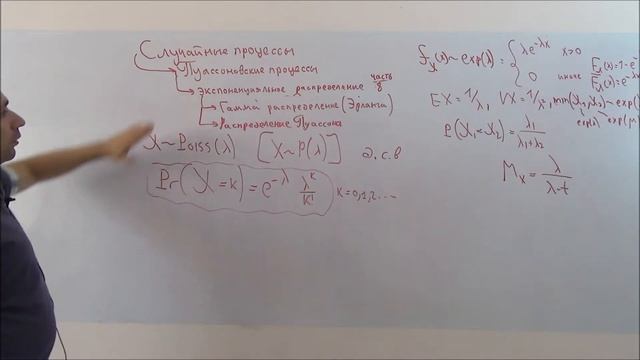 Случайные процессы
Пуассоновские процессы
Экспоненциальное распределение часть 8
Гамма распределение (Эрланга)
Распределение Пуассона
X ~ Poiss(λ) [X ~ P(λ)] д.с.в
Pr(X = k) = e^{-λ} λ^k / k! k = 0,1,2....
f_X(x) ~ exp(λ) = { λe^{-λx} x>0
0 иначе
F_X(x) = 1 - e^-
F̅_X(x) = e^-
EX = 1/λ, VX = 1/λ², min(X₁,X₂) ~ exp(
P(X₁ = X₂) = λ₁ / λ₁+λ₂
M_X = λ / λ-t